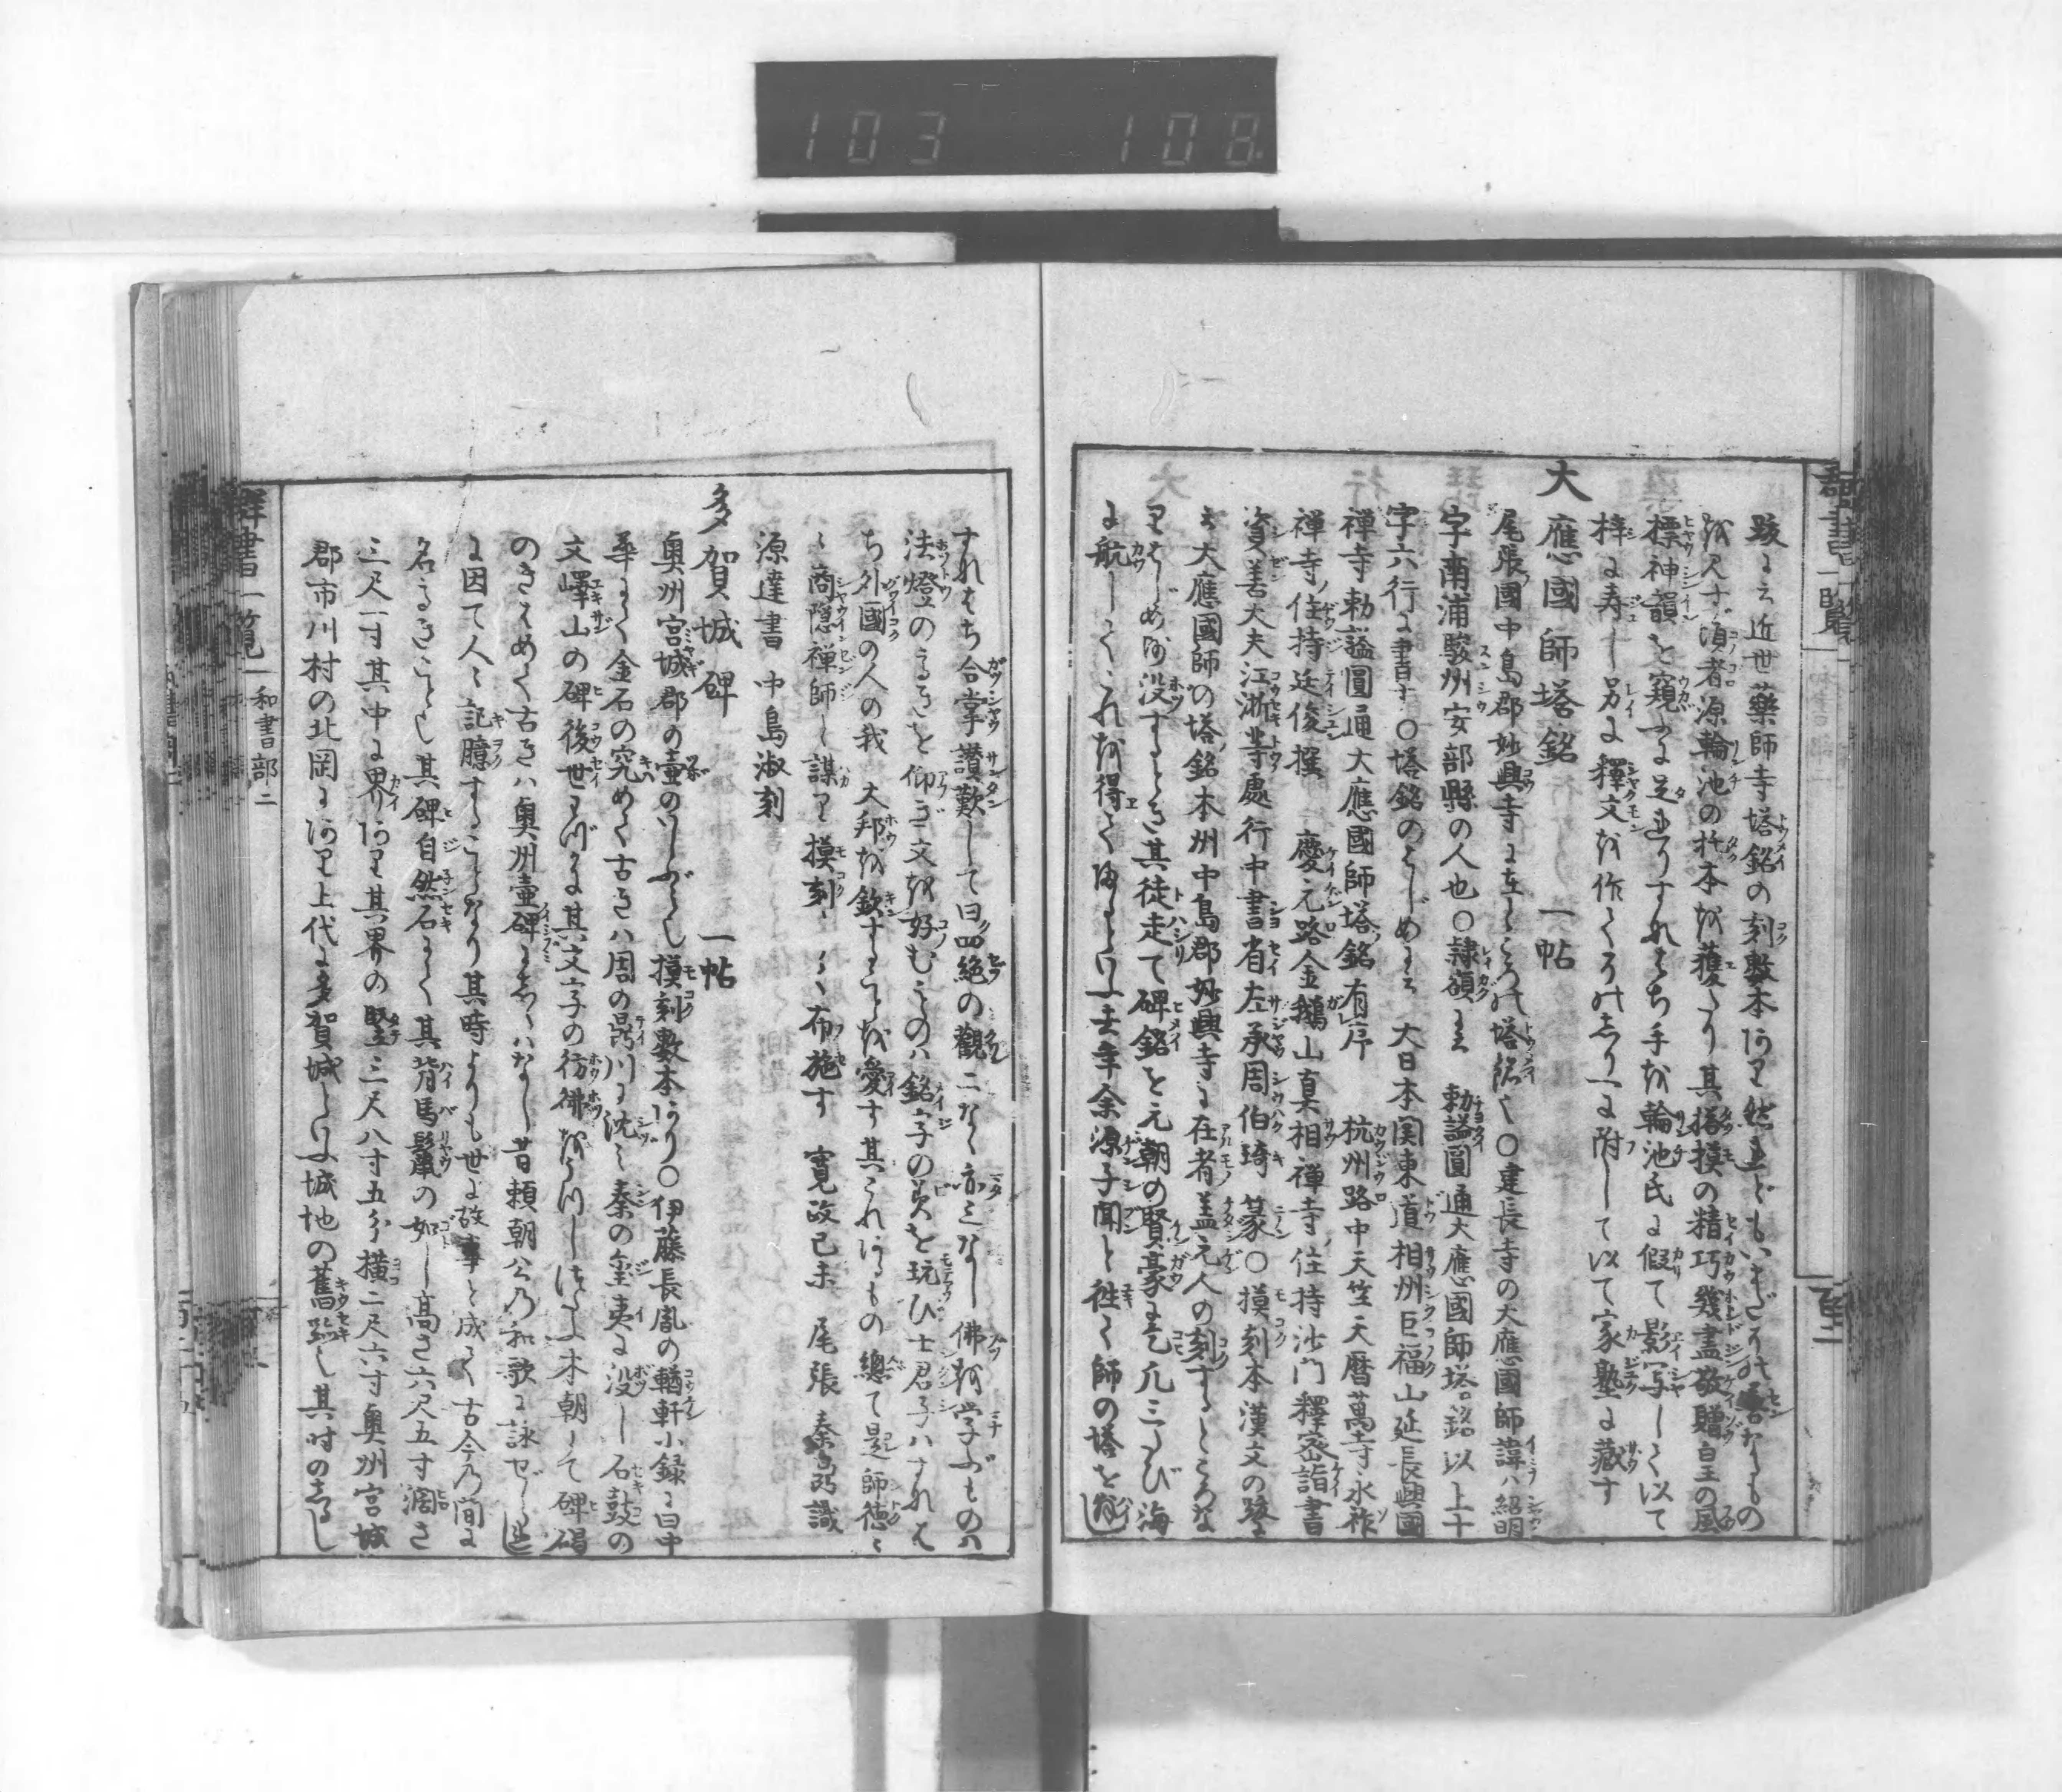 103 108
群書一覧
跋に云近世薬師寺塔銘の刻數本あり然れどもいまだその善なるもの
を見ず頃者源輪池の拓本を獲たり其搨摸の精巧幾盡敬贈皇の風
標神韻を窺ふに足れりすなはち手を輪池氏に假て影写して以て
梓に寿し另に釋文を作てその志りへに附して以て家塾に藏す
大應國師塔銘 一帖
尾張國中島郡妙興寺に在ところの塔銘也○建長寺の大應國師諱ハ紹明
字南浦駿州安部縣の人也○隷額に 勅諡圓通大應國師塔銘以上十
字六行に書す○塔銘のはじめに 大日本関東道相州巨福山延長興國
禅寺勅諡圓通大應國師塔銘有序 杭州路中天竺天暦萬壽永祚
禅寺住持廷俊撰 慶元路金鵝山真相禅寺住持沙门釋密詣書
資善大夫江浙等處行中書省左丞周伯琦篆○摸刻本漢文の跋に
云大應國師の塔銘本州中島郡妙興寺に在者蓋元人の刻するところな
りはじめ師没するとき其徒走て碑銘を元朝の賢豪に乞凡三たび海
に航してこれを得て 余源子聞と徃て師の塔を
すなはち合掌讃歎して曰四絶の觀二なく亦三なし佛を学ぶものハ
法燈の たるきを仰ぎ文を好むものハ銘字の美を玩び士君子ハすなは
ち外國の人の我 大邦を欽することを愛す其これあるもの總て是師徳に
 商隱禅師と謀り摸刻 布施す 寛政己未 尾張 秦 識
源達書 中島淑刻
多賀城碑 一帖
奥州宮城郡の壷のいしぶみ也摸刻數本あり○伊藤長胤の輶軒小録に曰中
華にて金石の究めて古きハ周の鼎川に沈ミ秦の金夷に没し石鼓の
文嶧山の碑後世 其文字の彷彿をうつし 本朝にて碑碣
のきはめて古きハ奥州壷碑にしくハなし昔頼朝公乃和歌に詠ぜられし
に因て人々記臆することなり其時よりも世に故事と成て古今乃間に
名 其碑自然石にて其背馬鬣の如し高さ六尺五寸濶さ
三尺一寸其中に界あり其界の竪三尺八寸五分横二尺六寸奥州宮城
郡市川村の北岡にあり上代に多賀城といふ城地の舊跡し其时の志るし
群書一覧 和書部二